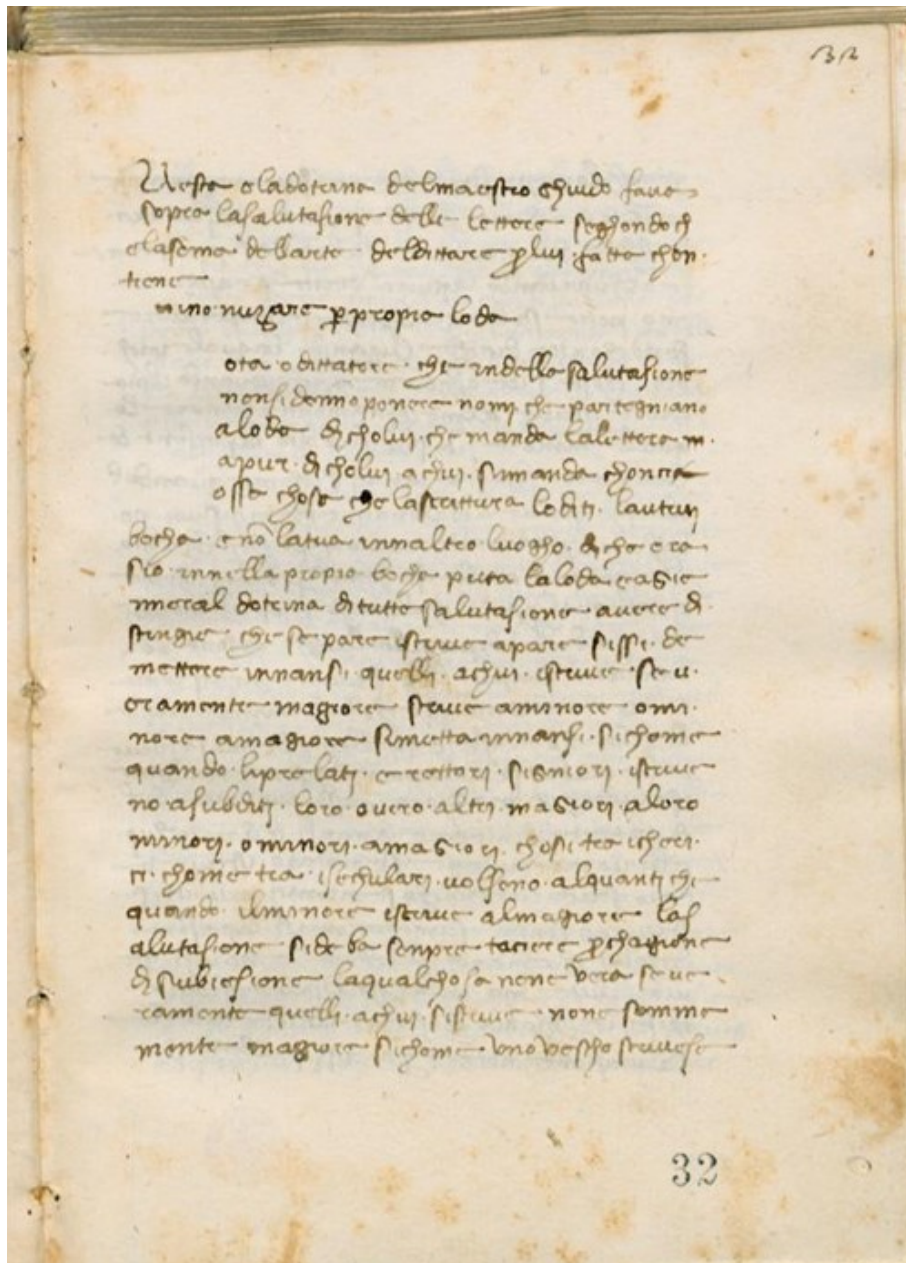 32
Uesta e la dotrina del maestro Ghuido fava
sopra lasalutasione delle lettere seghondo ch
elasoma dellarte deldittare plui fatta chon
tiene
nino nuzare p propria loda
ota o dittatore che indella salutasione
nonsidenno ponere nomi che partegniano
aloda di cholui che manda lalettera m
apur di cholui achui simanda choncio
ossia chosa che lascrittura loditi lautrui
bocha e no latua innaltro luogho diche ora
sio innella propio bocha puta laloda eagie
nneral dotrina di tutte salutasione avere di
stingie che se pare iscrive apare sissi de
mettere innansi quelli achui iscrive se v
eramente magiore scrive aminore omi
nore amagiore simetta innansi sichome
quando liprelati e rettori signiori iscrive
no asubditi loro overo altri magiori aloro
minori ominori amagiori chosi tra icheri
ci chome tra isechulari volseno alquanti che
quando ilminore iscrive almagiore las
alutasione sideba senpre taciere pchagione
di subiesione laqualchosa none vera seve
ramente quelli achui siscrive none somma
mente magiore sichome uno vescho scrivese
32